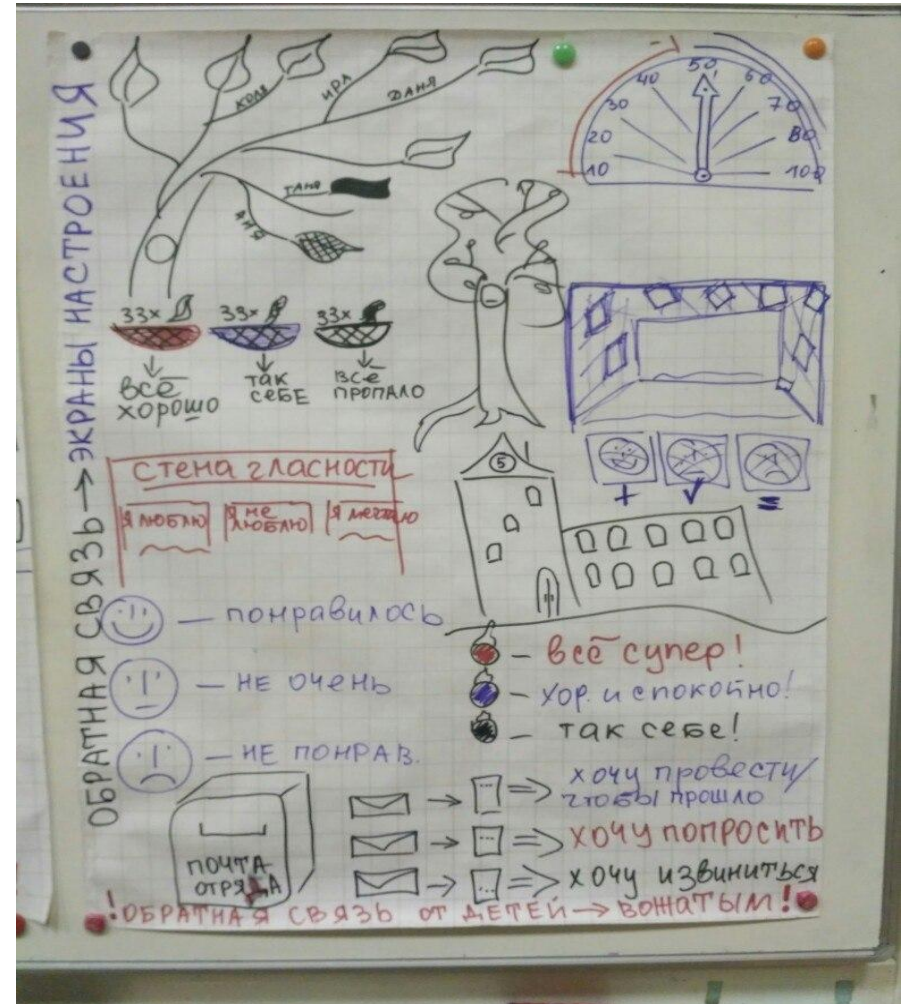 ОБРАТНАЯ СВЯЗЬ → ЭКРАНЫ НАСТРОЕНИЯ
КОЛЯ
ИРА
ДАНЯ
ТАНЯ
АНЯ
10 20 30 40 50 60 70 80 100
33х
33х
33х
всё
хорошо
так
себе
всё
пропало
стена гласности
я люблю
я не
люблю
я мечтаю
5
+
✓
=
— понравилось
— не очень
— не понрав.
— всё супер!
— хор. и спокойно!
— так себе!
ПОЧТА
ОТРЯДА
→ ... ⇒ хочу провести/
чтобы прошло
→ ... ⇒ хочу попросить
→ ... ⇒ хочу извиниться
!ОБРАТНАЯ СВЯЗЬ ОТ ДЕТЕЙ → ВОЖАТЫМ!